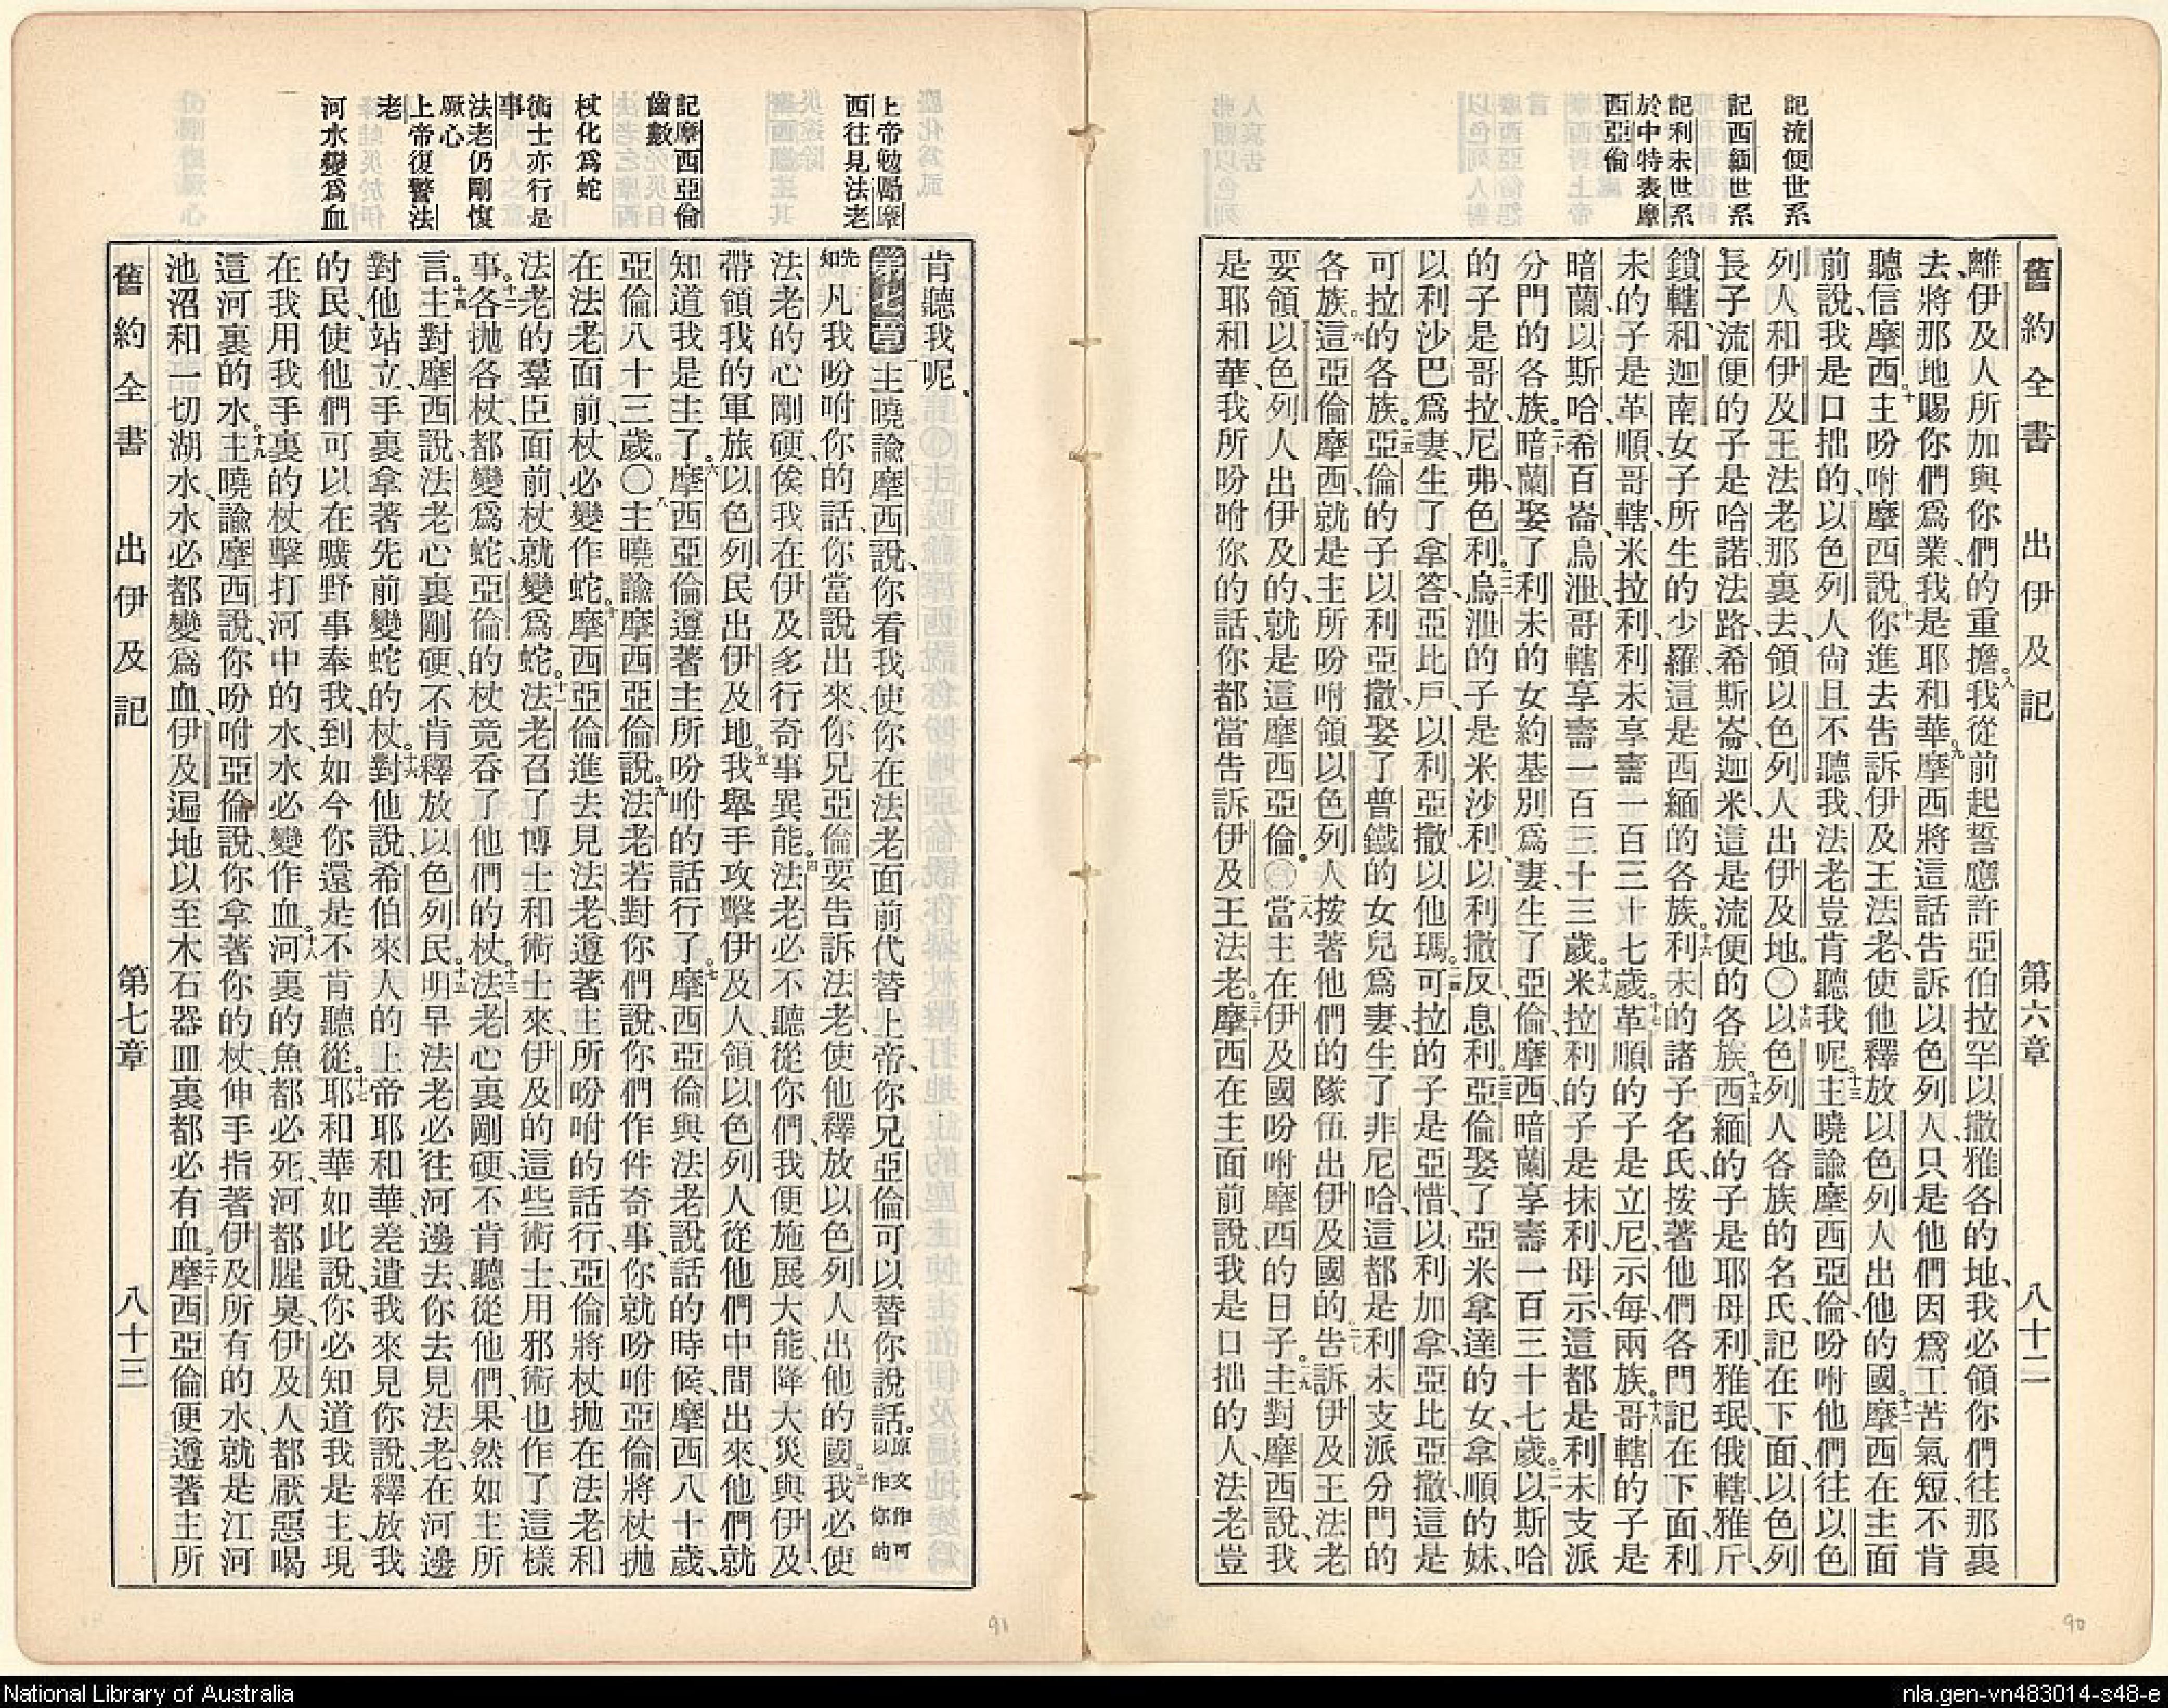 記流便世系
記西緬世系
記利未世系
於中特表摩
西亞倫
舊約全書 出伊及記 第六章 八十二
離伊及人所加與你們的重擔。八我從前起誓應許亞伯拉罕以撒雅各的地、我必領你們往那裏
去、將那地賜你們爲業、我是耶和華。九摩西將這話告訴以色列人、只是他們因爲工苦氣短、不肯
聽信摩西。十主吩咐摩西說、十一你進去告訴伊及王法老、使他釋放以色列人出他的國。十二摩西在主面
前說、我是口拙的、以色列人尙且不聽我、法老豈肯聽我呢。十三主曉諭摩西亞倫、吩咐他們往以色
列人和伊及王法老那裏去、領以色列人出伊及地。○十四以色列人各族的名氏、記在下面、以色列
長子流便的子是哈諾、法路、希斯崙、迦米、這是流便的各族。十五西緬的子是耶母利、雅珉、俄轄、雅斤、
鎖轄、和迦南女子所生的少羅、這是西緬的各族。十六利未的諸子名氏、按著他們各門記在下面、利
未的子是革順、哥轄、米拉利、利未享壽一百三十七歲。十七革順的子是立尼、示每、兩族。十八哥轄的子是
暗蘭、以斯哈、希百崙、烏泄、哥轄享壽一百三十三歲。十九米拉利的子是抹利、母示、這都是利未支派
分門的各族。二十暗蘭娶了利未的女約基別爲妻、生了亞倫、摩西、暗蘭享壽一百三十七歲。二一以斯哈
的子是哥拉、尼弗、色利。二二烏泄的子是米沙利、以利撒反、息利。二三亞倫娶了亞米拿達的女、拿順的妹、
以利沙巴爲妻、生了拿答、亞比戶、以利亞撒、以他瑪。二四可拉的子是亞惜、以利加拿、亞比亞撒、這是
可拉的各族。二五亞倫的子以利亞撒、娶了普鐵的女兒爲妻、生了非尼哈、這都是利未支派分門的
各族。二六這亞倫摩西、就是主所吩咐領以色列人按著他們的隊伍出伊及國的。二七告訴伊及王法老
要領以色列人出伊及的、就是這摩西亞倫。○二八當主在伊及國吩咐摩西的日子、二九主對摩西說、我
是耶和華、我所吩咐你的話、你都當告訴伊及王法老。三十摩西在主面前說、我是口拙的人、法老豈
上帝勉勵摩
西往見法老
記摩西亞倫
齒數
杖化爲蛇
術士亦行是
事
法老仍剛愎
厥心
上帝復警法
老
河水變爲血
肯聽我呢、
第七章一主曉諭摩西說、你看我使你在法老面前代替上帝、你兄亞倫可以替你說話。原文作可以作你的
先知二凡我吩咐你的話、你當說出來、你兄亞倫要告訴法老、使他釋放以色列人出他的國。三我必使
法老的心剛硬、俟我在伊及多行奇事異能。四法老必不聽從你們、我便施展大能、降大災與伊及、
帶領我的軍旅以色列民出伊及地。五我舉手攻擊伊及人、領以色列人從他們中間出來、他們就
知道我是主了。六摩西亞倫遵著主所吩咐的話行了。七摩西亞倫與法老說話的時候、摩西八十歲、
亞倫八十三歲。○八主曉諭摩西亞倫說、九法老若對你們說、你們作件奇事、你就吩咐亞倫將杖拋
在法老面前、杖必變作蛇。十摩西亞倫進去見法老、遵著主所吩咐的話行、亞倫將杖拋在法老和
法老的羣臣面前、杖就變爲蛇。十一法老召了博士和術士來、伊及的這些術士、用邪術也作了這樣
事。十二各拋各杖、都變爲蛇、亞倫的杖竟吞了他們的杖。十三法老心裏剛硬、不肯聽從他們、果然如主所
言。十四主對摩西說、法老心裏剛硬、不肯釋放以色列民。十五明早法老必往河邊去、你去見法老、在河邊
對他站立、手裏拿著先前變蛇的杖。十六對他說、希伯來人的上帝耶和華、差遣我來見你說、釋放我
的民、使他們可以在曠野事奉我、到如今你還是不肯聽從。十七耶和華如此說、你必知道我是主、現
在我用我手裏的杖擊打河中的水、水必變作血。十八河裏的魚都必死、河都腥臭、伊及人都厭惡喝
這河裏的水。十九主曉諭摩西說、你吩咐亞倫說、你拿著你的杖、伸手指著伊及所有的水、就是江河
池沼和一切湖水、水必都變爲血、伊及遍地以至木石器皿裏、都必有血。二十摩西亞倫便遵著主所
舊約全書 出伊及記 第七章 八十三
91
90
National Library of Australia
nla.gen-vn483014-s48-e